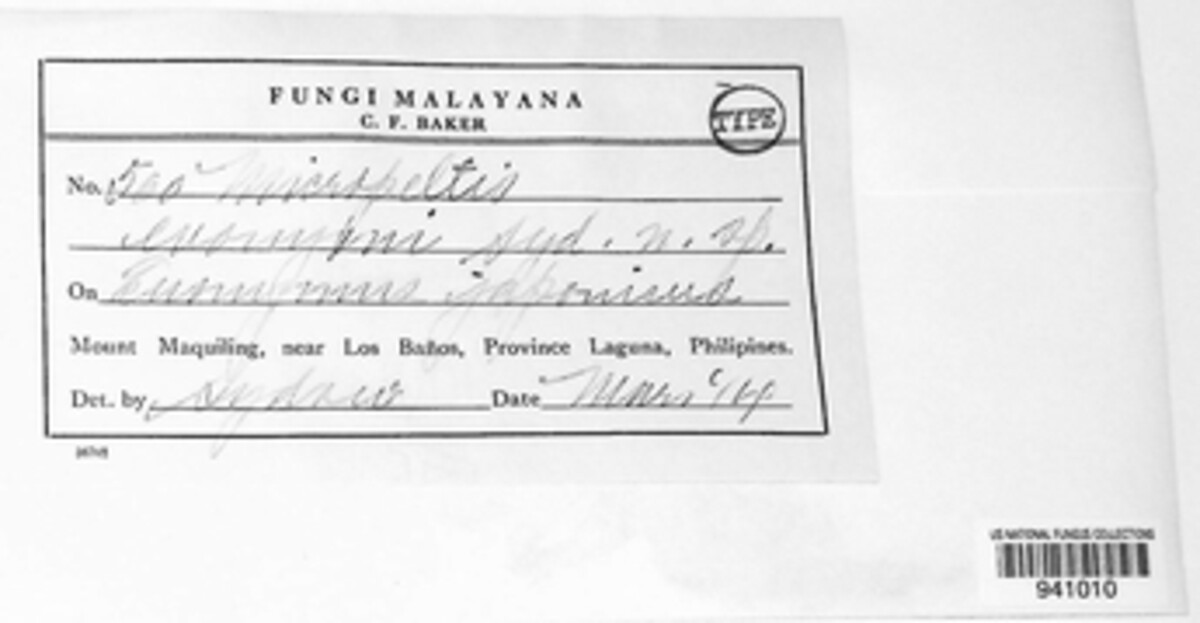 FUNGI MALAYANA
C. F. BAKER
TYPE
No. 500 Micropeltis
evonymi Syd. n. sp.
On Euonymus japonicus
Mount Maquiling, near Los Baños, Province Laguna, Philipines.
Det. by Sydow Date Mar '14
US NATIONAL FUNGUS COLLECTIONS
941010